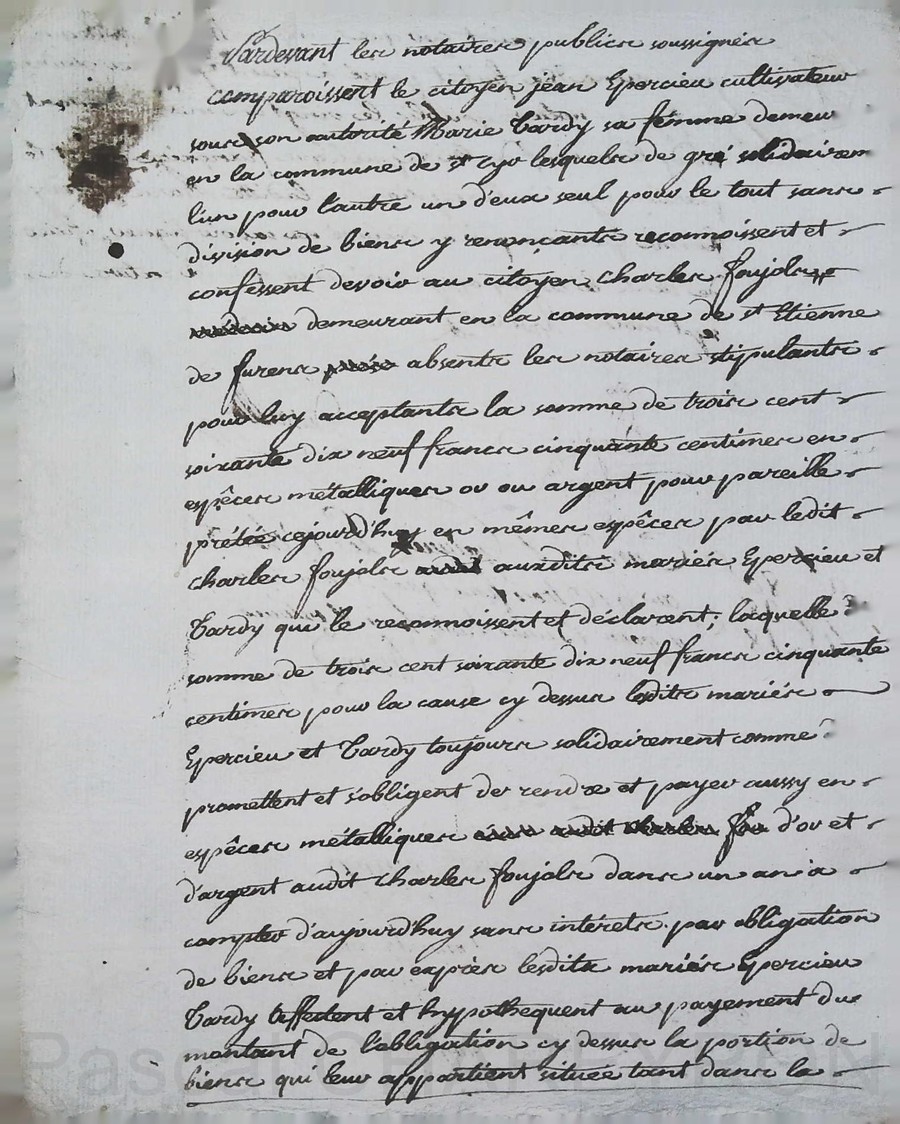 Pardevant les notaires publics soussignés
comparoissent le citoyen jean Epercieu cultivateur
sous son autorité Marie Tardy sa fémme demeu
en la commune de st cyr lesquels de gré solidairem
l'un pour l'autre un d'eux seul pour le tout sans
division de biens y renonçants reconnoissent et
conféssent devoir au citoyen Charles foujols
demeurant en la commune de st Etienne
de furens absents les notaires stipulants
pour luy acceptants la somme de trois cent
soixante dix neuf francs cinquante centimes en
espêces métalliques or ou argent pour pareille
prétée cejourd'huy en mêmes espêces par ledit
charles foujols auxdits mariés Epercieu et
Tardy qui le reconnoissent et déclarent; laquelle
somme de trois cent soixante dix neuf francs cinquante
centimes pour la cause cy dessus lesdits mariés
Epercieu et Tardy toujours solidairement comme
promettent et s'obligent de rendre et payer aussy en
espêces métalliques d'or et
d'argent audit Charles foujols dans un an a
compter d'aujourd'huy sans intérêts par obligation
de biens et par exprès lesdits mariés Epercieu
Tardy affectent et hypothequent au payement du
montant de l'obligation cy dessus la portion de
biens qui leur appartient située tant dans la